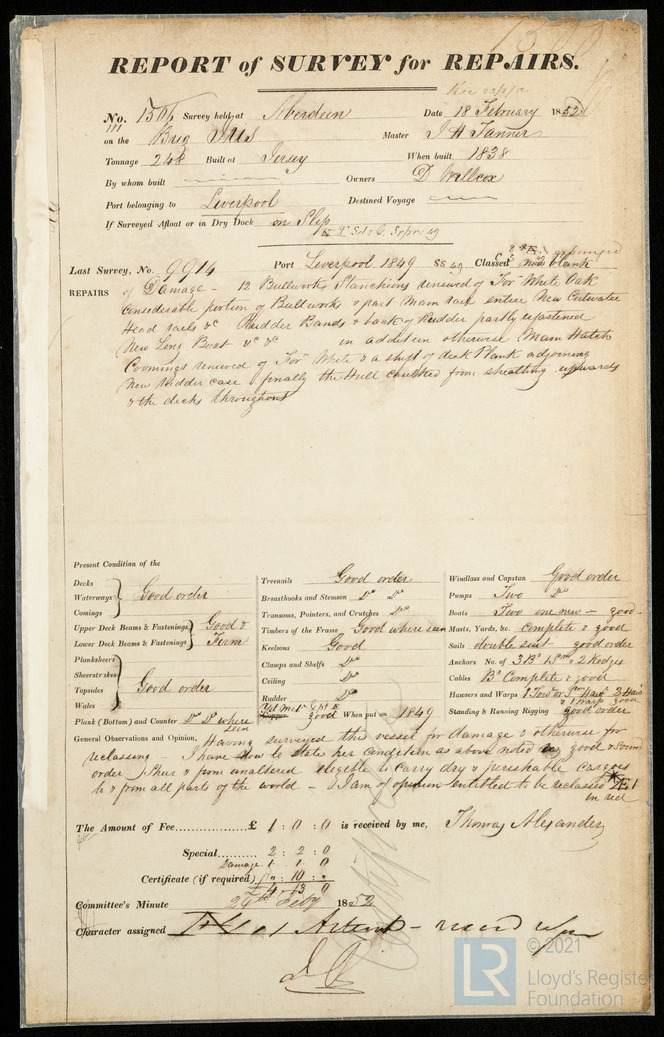 REPORT of SURVEY for REPAIRS.
No. 1506 Survey held at Aberdeen Date 18 February 1852
on the Brig Iris Master J H Tanner
Tonnage 248 Built at Jersey When built 1838
By whom built Owners D Willcox
Port belonging to Liverpool Destined Voyage
If Surveyed Afloat or in Dry Dock on Slip
Last Survey, No. 9914 Port Liverpool 1849 SS 49 Classed now blank
REPAIRS of Damage - 12 Bullworks Stanchions renewed of For White Oak
considerable portion of Bullworks & part Main rail entire New Cutwater
Head rails &c Rudder Bands & back of Rudder partly refastened
New Long Boat &c &c in addition otherwise Main Hatch
Coomings renewed of For White & a shift of deck Plank adjoining
New Rudder case & finally the Hull caulked from sheathing upwards
& the decks throughout
Present Condition of the
Decks
Waterways
Comings
Good order
Upper Deck Beams & Fastenings
Lower Deck Beams & Fastenings
Good & Firm
Planksheers
Sheerstrakes
Topsides
Wales
Good order
Plank (Bottom) and Counter Do Do where seen
Treenails Good order
Breasthooks and Stemson Do Do
Transoms, Pointers, and Crutches Do
Timbers of the Frame Good where seen
Keelsons Good
Clamps and Shelfs Do
Ceiling Do
Rudder Do
Copper good When put on 1849
Windlass and Capstan Good order
Pumps Two Do
Boats Two one new - good
Masts, Yards, &c. Complete & good
Sails double suit good order
Anchors No. of 3 Bs 1 Sm & 2 Kedges
Cables Bs Complete & good
Hawsers and Warps
Standing & Running Rigging good order
General Observations and Opinion, Having surveyed this vessel for damage & otherwise for
reclassing - I have now to state her condition as above noted in good & sound
order & from unaltered eligible to carry dry & perishable Cargoes
to & from all parts of the world - & I am of opinion entitled to be reclassed Æ1
in red
The Amount of Fee £ 1 : 0 : 0 is received by me, Thomas Alexander
Special 2 : 2 : 0
Damage 1 1 0
Certificate (if required) 0 : 10 : 0
£4 13 0
Committee's Minute 24th Feby 1852
Character assigned
© 2021
LR Lloyd's Register
Foundation